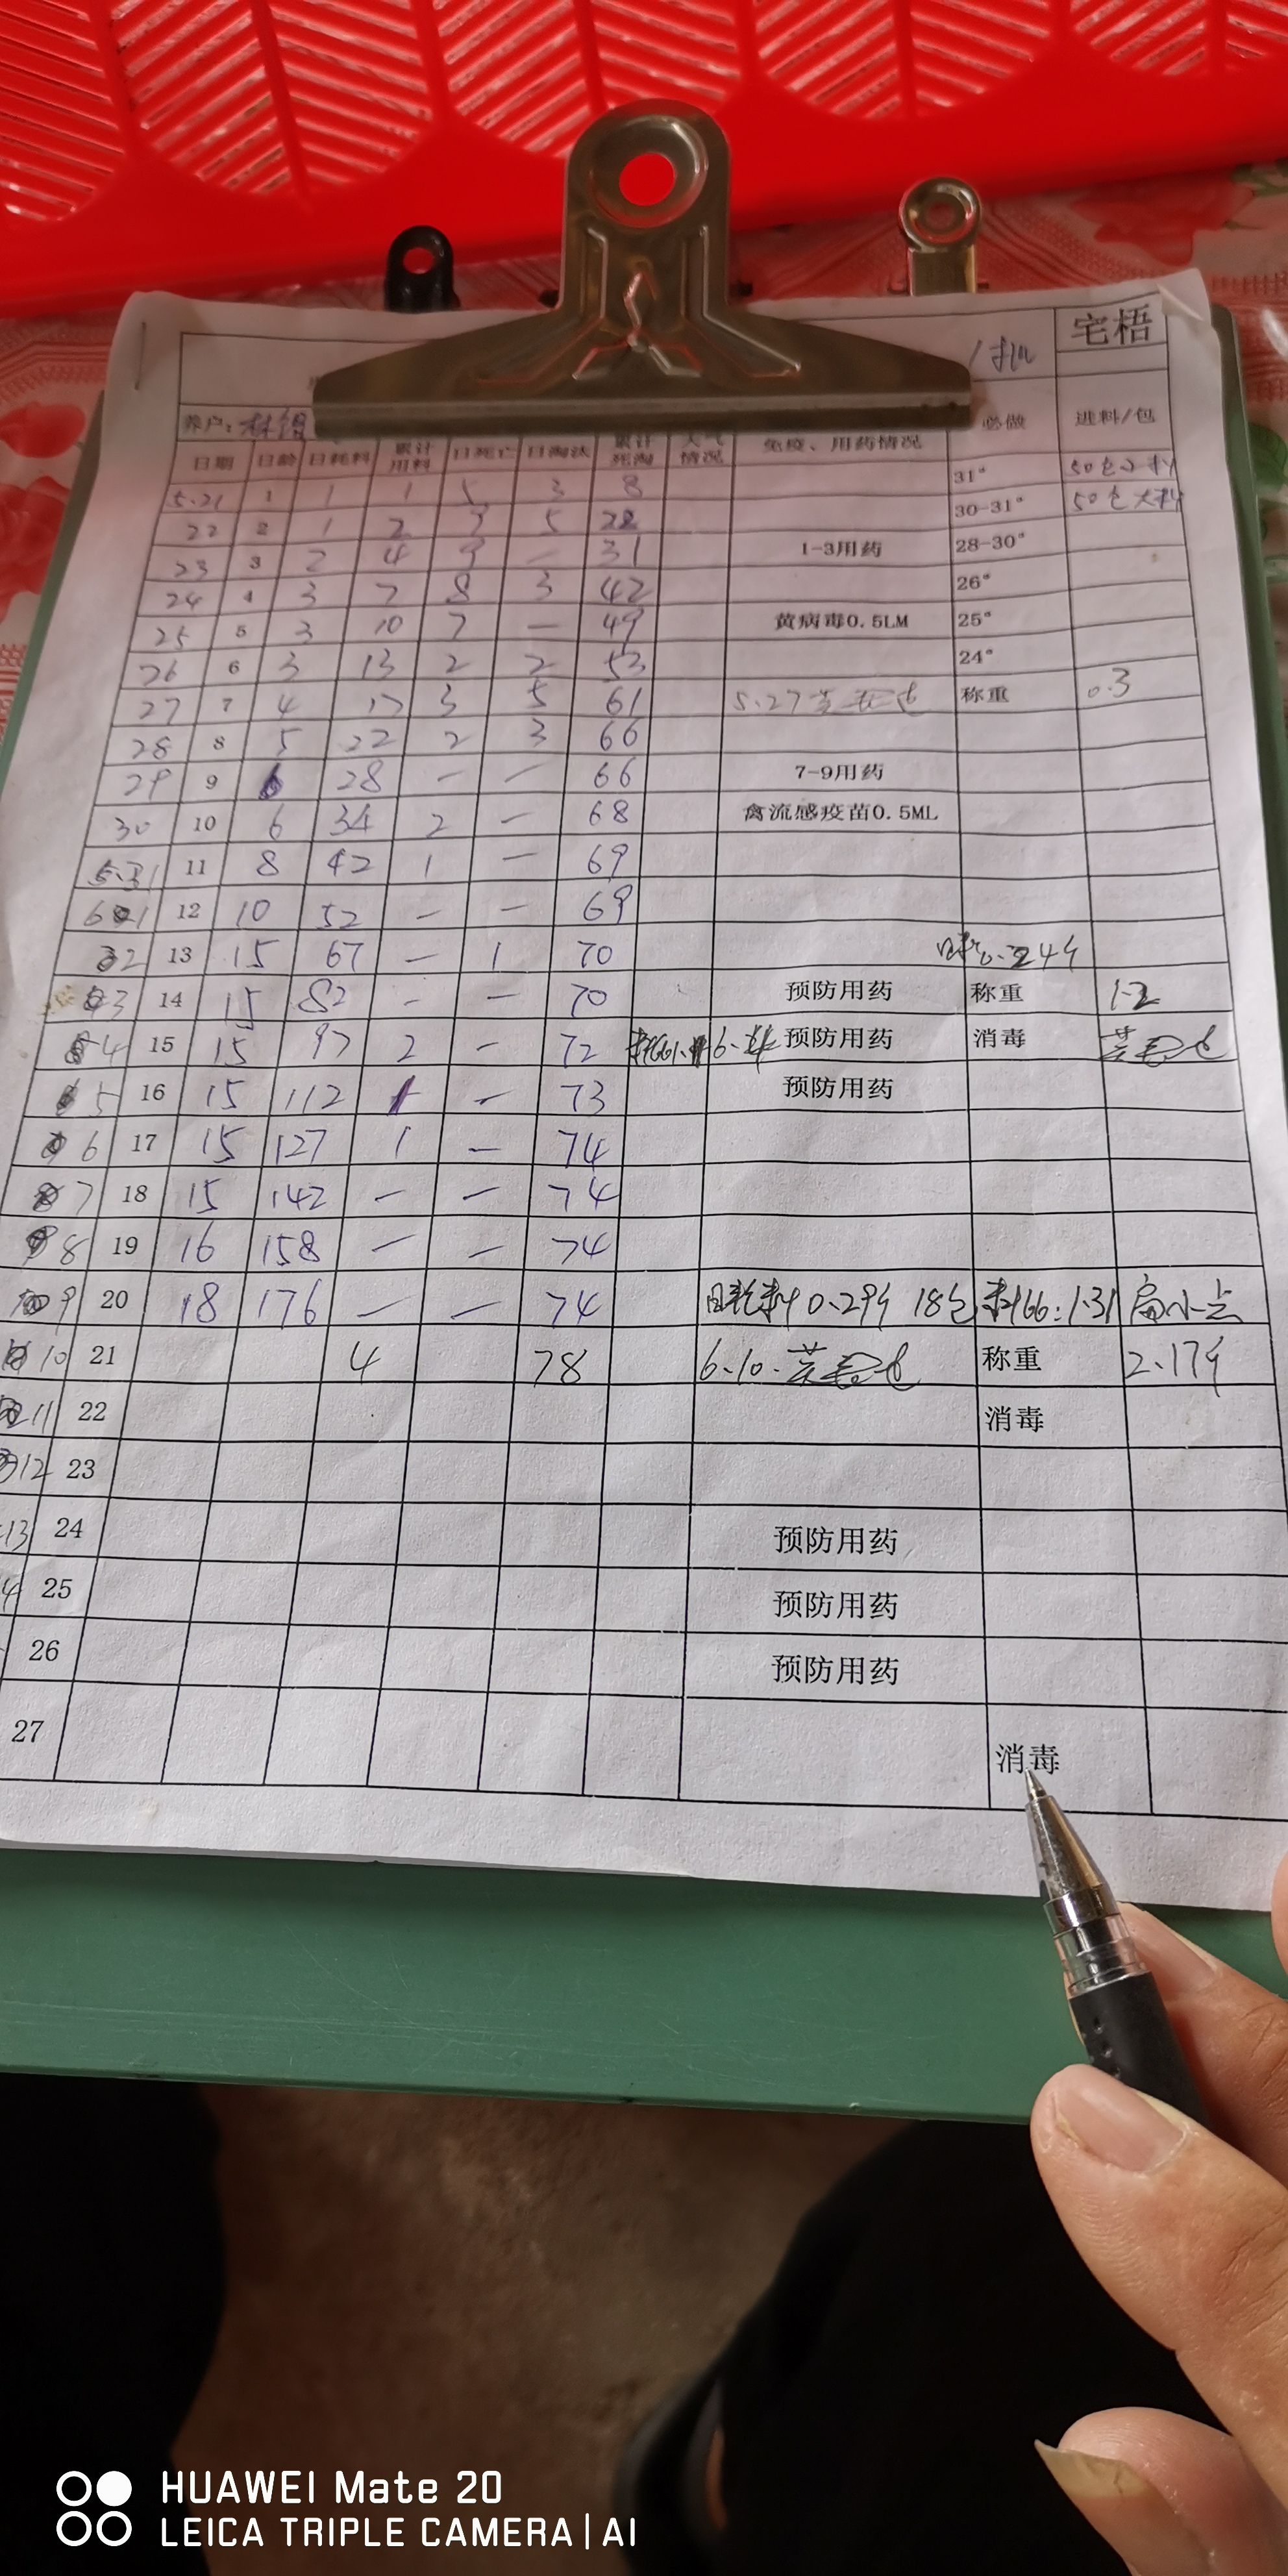 宅梧
1批
养户:林锠 必做 进料/包
日期 日龄 日耗料 累计用料 日死亡 日淘汰 累计死淘 天气情况 免疫、用药情况
5.21 1 1 1 5 3 8 31° 50包小料
22 2 1 2 9 5 22 30-31° 50包大料
23 3 2 4 9 — 31 1-3用药 28-30°
24 4 3 7 8 3 42 26°
25 5 3 10 7 — 49 黄病毒0.5LM 25°
26 6 3 13 2 2 53 24°
27 7 4 17 3 5 61 5.27 称重 0.3
28 8 5 22 2 3 66
29 9 6 28 — — 66 7-9用药
30 10 6 34 2 — 68 禽流感疫苗0.5ML
5.31 11 8 42 1 — 69
6.1 12 10 52 — — 69
2 13 15 67 — 1 70
3 14 15 82 - — 70 预防用药 称重 1.2
4 15 15 97 2 - 72 预防用药 消毒
5 16 15 112 1 - 73 预防用药
6 17 15 127 1 — 74
7 18 15 142 — — 74
8 19 16 158 — — 74
9 20 18 176 — — 74 日耗料0.29斤 18包 料肉:1.31 扁小点
10 21 4 78 6.10. 称重 2.17斤
11 22 消毒
12 23
13 24 预防用药
4 25 预防用药
26 预防用药
27 消毒
HUAWEI Mate 20
LEICA TRIPLE CAMERA | AI